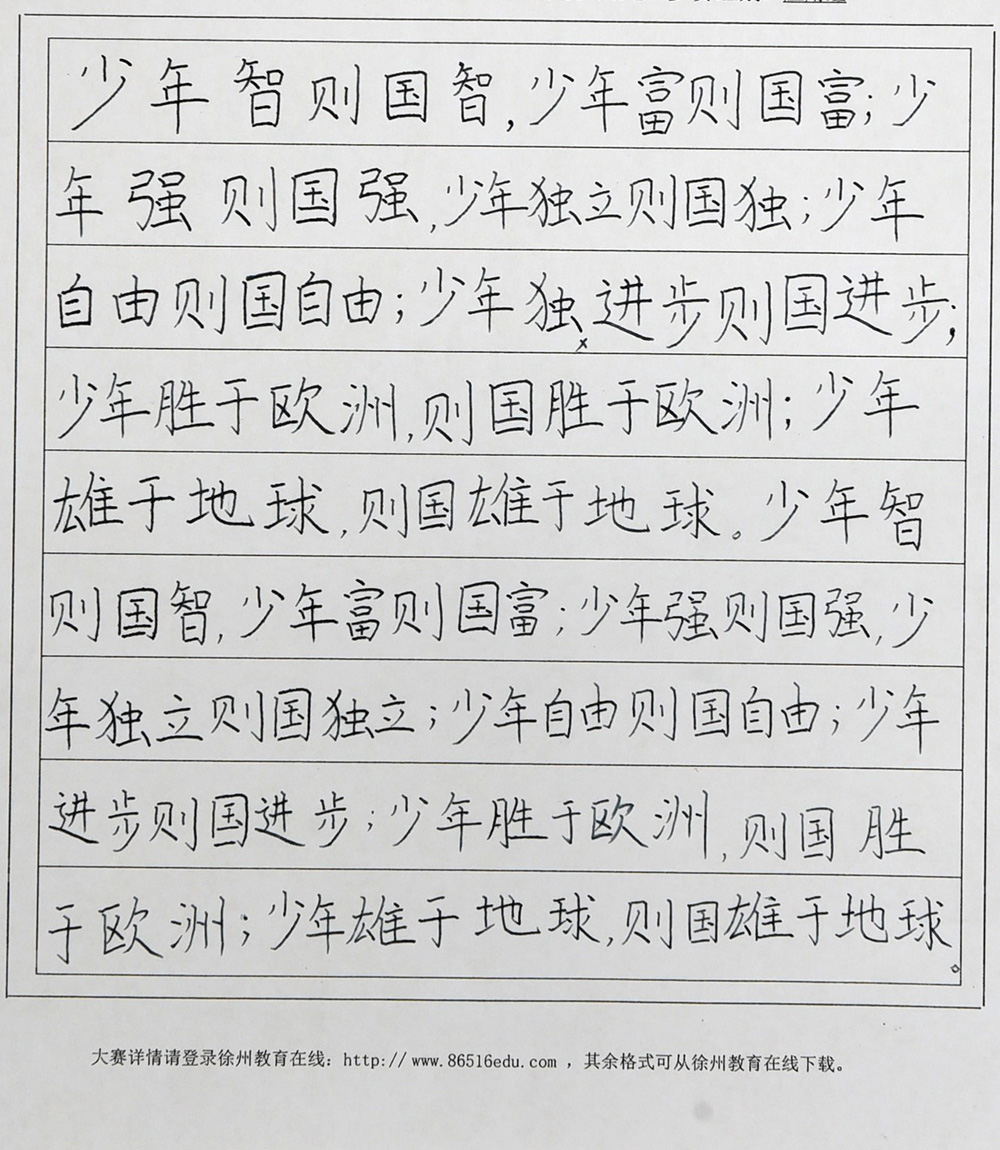 少年智则国智,少年富则国富;少
年强则国强,少年独立则国独;少年
自由则国自由;少年独进步则国进步;
少年胜于欧洲,则国胜于欧洲;少年
雄于地球,则国雄于地球。少年智
则国智,少年富则国富;少年强则国强,少
年独立则国独立;少年自由则国自由;少年
进步则国进步;少年胜于欧洲,则国胜
于欧洲;少年雄于地球,则国雄于地球。
大赛详情请登录徐州教育在线: http://www.86516edu.com ,其余格式可从徐州教育在线下载。